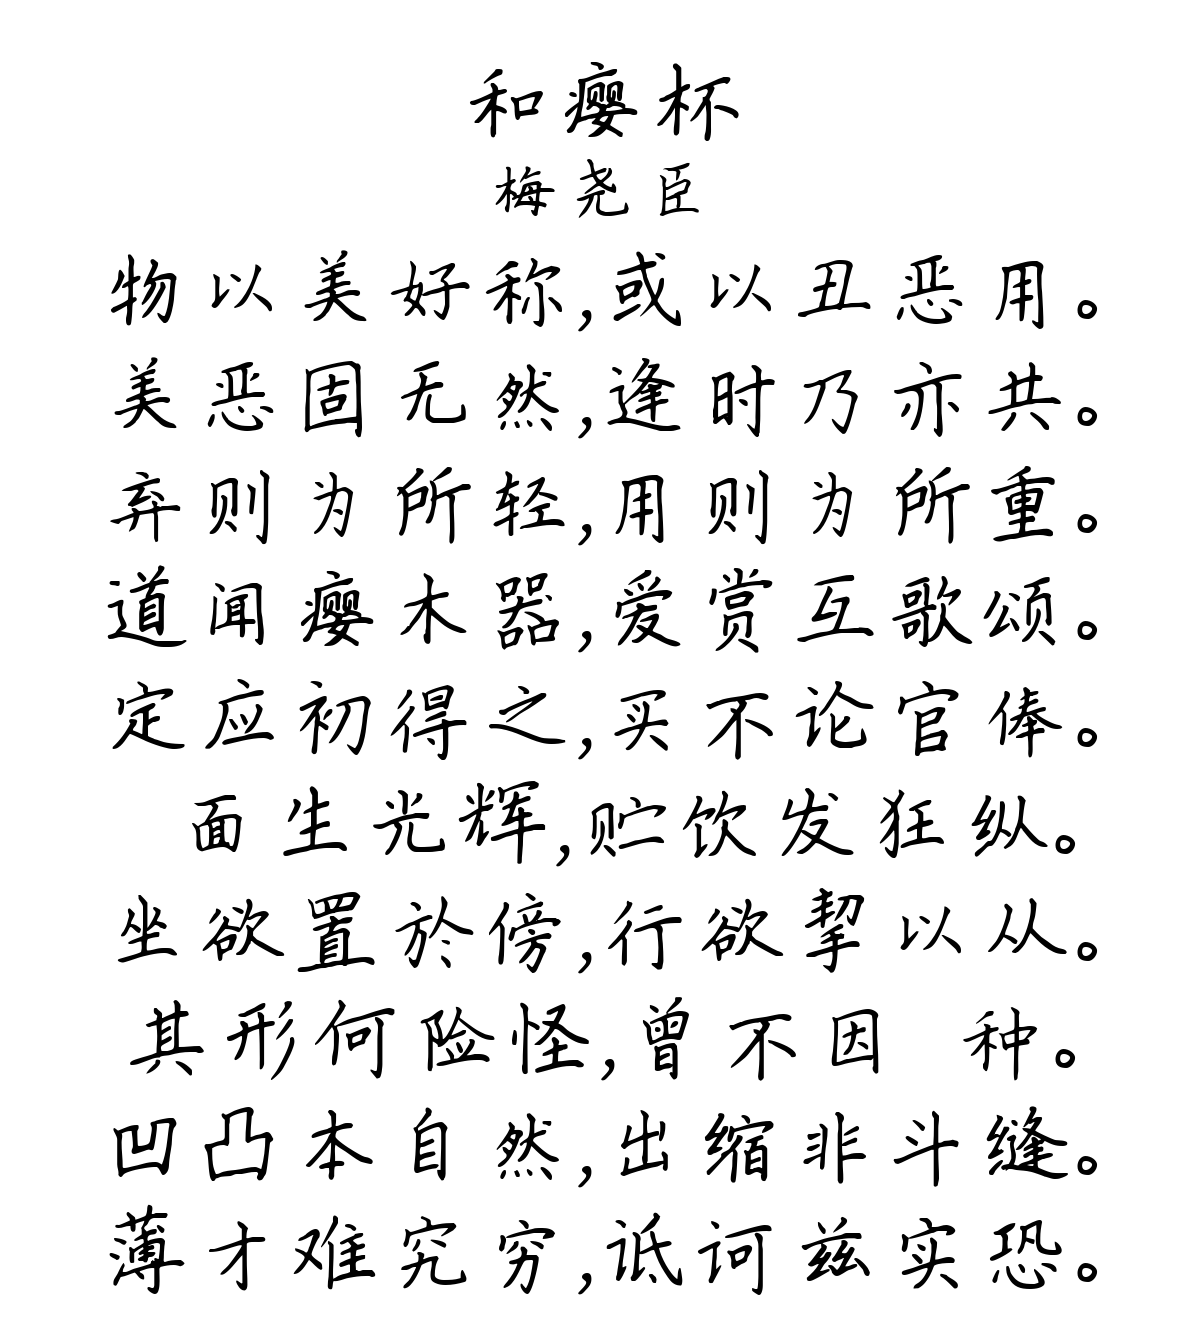 和瘿杯
梅尧臣
物以美好称,或以丑恶用。
美恶固无然,逢时乃亦共。
弃则为所轻,用则为所重。
道闻瘿木器,爱赏互歌颂。
定应初得之,买不论官俸。
面生光辉,贮饮发狂纵。
坐欲置於傍,行欲挈以从。
其形何险怪,曾不因 种。
凹凸本自然,出缩非斗缝。
薄才难究穷,诋诃兹实恐。